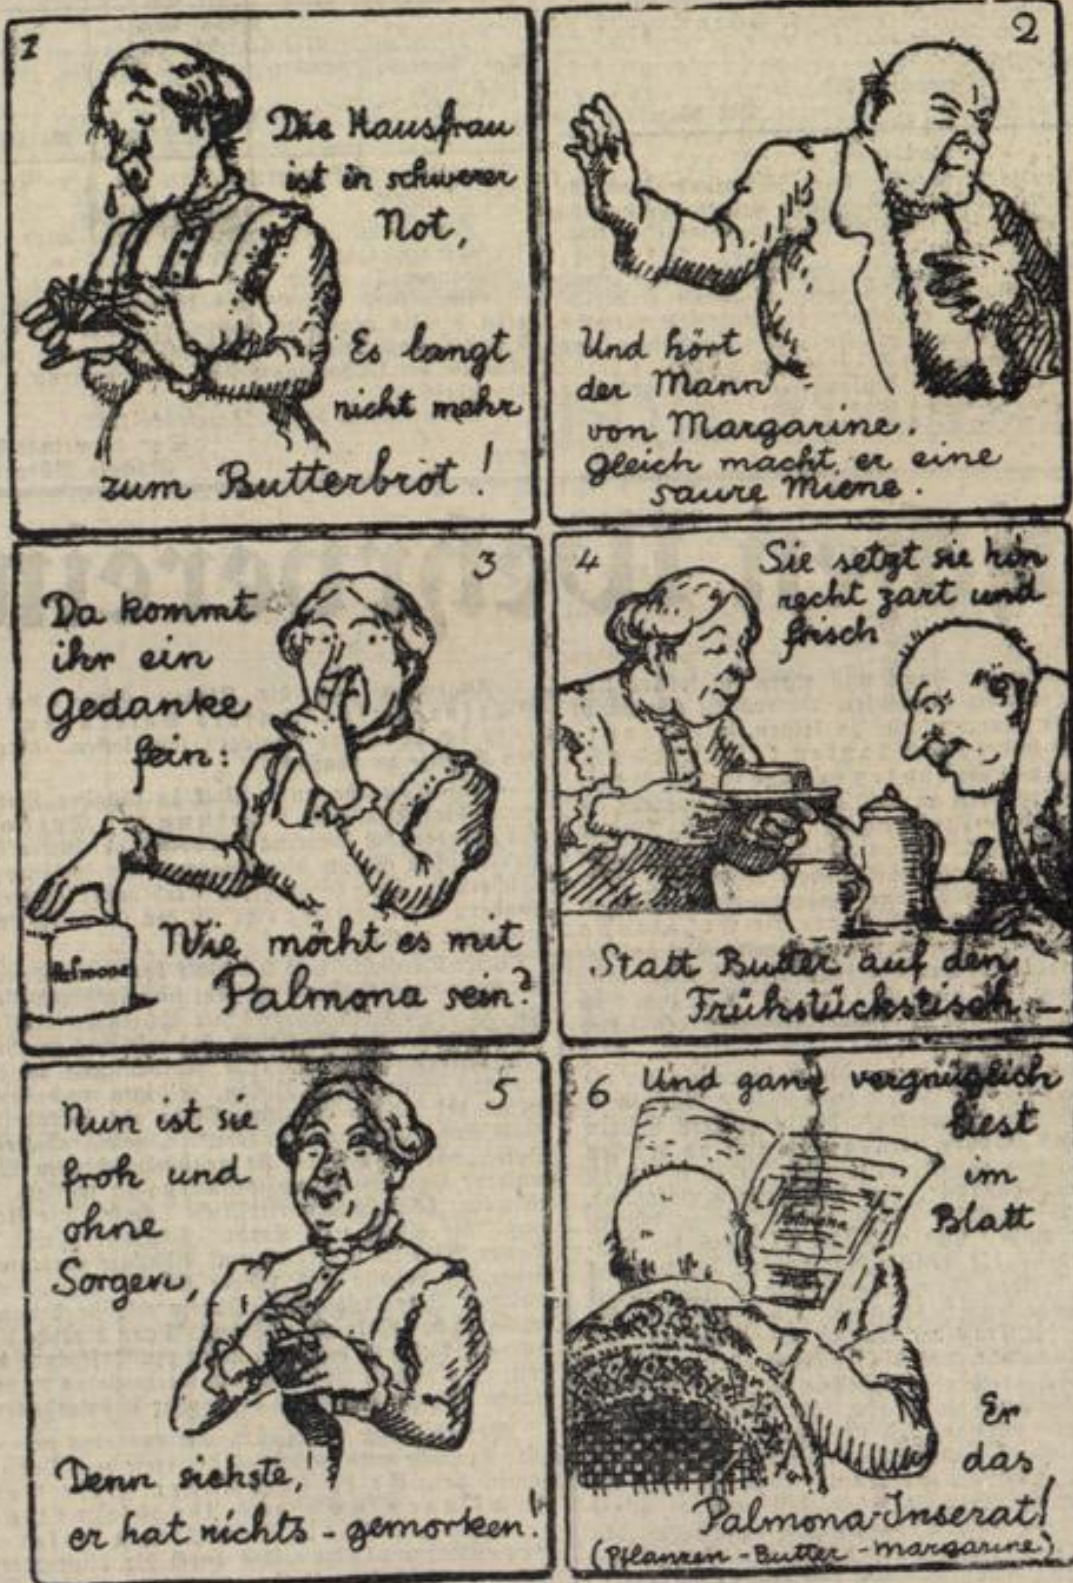 1
Die Hausfrau
ist in schwerer
Not,
Es langt
nicht mehr
zum Butterbrot!
2
Und hört
der Mann
von Margarine.
Gleich macht er eine
saure Miene.
3
Da kommt
ihr ein
Gedanke
fein:
Palmona
Wie möcht es mit
Palmona sein?
4
Sie setzt sie hin
recht zart und
frisch
Statt Butter auf den
Frühstückstisch -
5
Nun ist sie
froh und
ohne
Sorgen,
Denn siehste,
er hat nichts - gemorken!
6
Und ganz vergnüglich
liest
im
Blatt
Er
das
Palmona-Inserat!
(Pflanzen-Butter-Margarine)